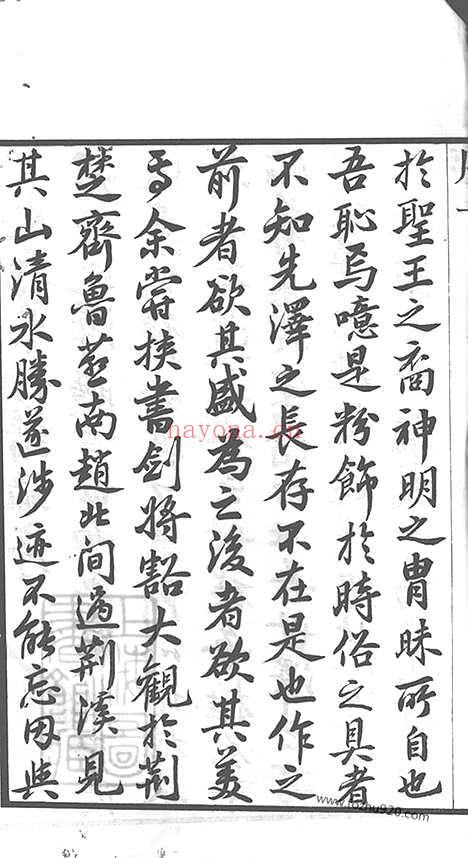 於聖王之裔神明之胄昧所自也
吾恥焉噫是粉飾於時俗之具者
不知先澤之長存不在是也作之
前者欲其盛為之後者欲其美
焉余嘗挾書劍將豁大觀於荆
楚齊魯燕南趙北間過荆溪見
其山清水勝遂涉迹不能忘因與
nayona.cn
www.fozhu920.com